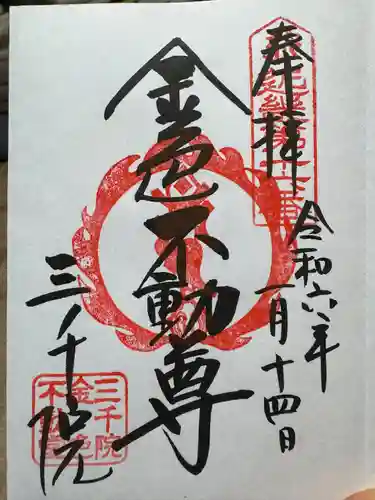 奉拝
令和六年
一月十四日
金色不動尊
三ノ千院
三千院
金色
不動尊